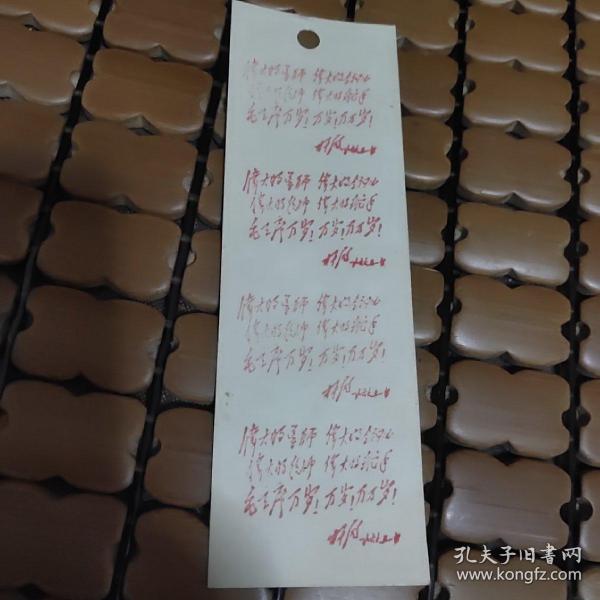 伟大的导师 伟大的领袖
伟大的统帅 伟大的舵手
毛主席万岁！万岁！万万岁！
林彪
伟大的导师 伟大的领袖
伟大的统帅 伟大的舵手
毛主席万岁！万岁！万万岁！
林彪
伟大的导师 伟大的领袖
伟大的统帅 伟大的舵手
毛主席万岁！万岁！万万岁！
林彪
伟大的导师 伟大的领袖
伟大的统帅 伟大的舵手
毛主席万岁！万岁！万万岁！
林彪
孔夫子旧书网
www.kongfz.com